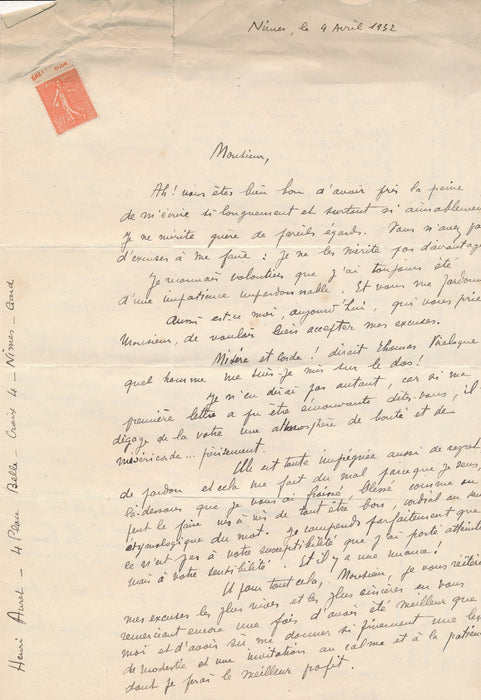 Nîmes, le 4 Avril 1932
50
Monsieur,
Ah! vous êtes bien bon d'avoir pris la peine
de m'écrire si longuement et surtout si aimablement
Je ne mérite guère de pareils égards. Vous n'avez pas
d'excuses à me faire : je ne les mérite pas d'avantage
Je reconnais volontiers que j'ai toujours été
d'une impatience impardonnable. Et vous me pardonnez
Aussi est-ce moi, aujourd'hui, qui vous prie
Monsieur, de vouloir bien accepter mes excuses.
Misère et corde ! dirait Thomas
quel homme me suis-je mis sur le dos!
Je n'en dirai pas autant, car si ma
première lettre a pu être émouvante dites-vous, il
dégage de la vôtre une atmosphère de bonté et de
miséricorde...
Elle est toute imprégnée aussi de regret
de pardon et cela me fait du mal parce que je sens,
là-dessous que je vous ai froissé, blessé comme on
peut le faire vis à vis de tout être bon, cordial au sens
étymologique du mot. Je comprends parfaitement que
ce n'est pas à votre susceptibilité que j'ai porté atteinte
mais à votre sensibilité. Et il y a une nuance!
Et pour tout cela, Monsieur, je vous réitère
mes excuses les plus vives et les plus sincères en vous
remerciant encore une fois d'avoir été meilleur que
moi et d'avoir su me donner si finement une leçon
de modestie et une invitation au calme et à la patience
dont je ferai le meilleur profit.
Henri Aurel - 4 Plan Belle - Croix 4 - Nîmes - Gard